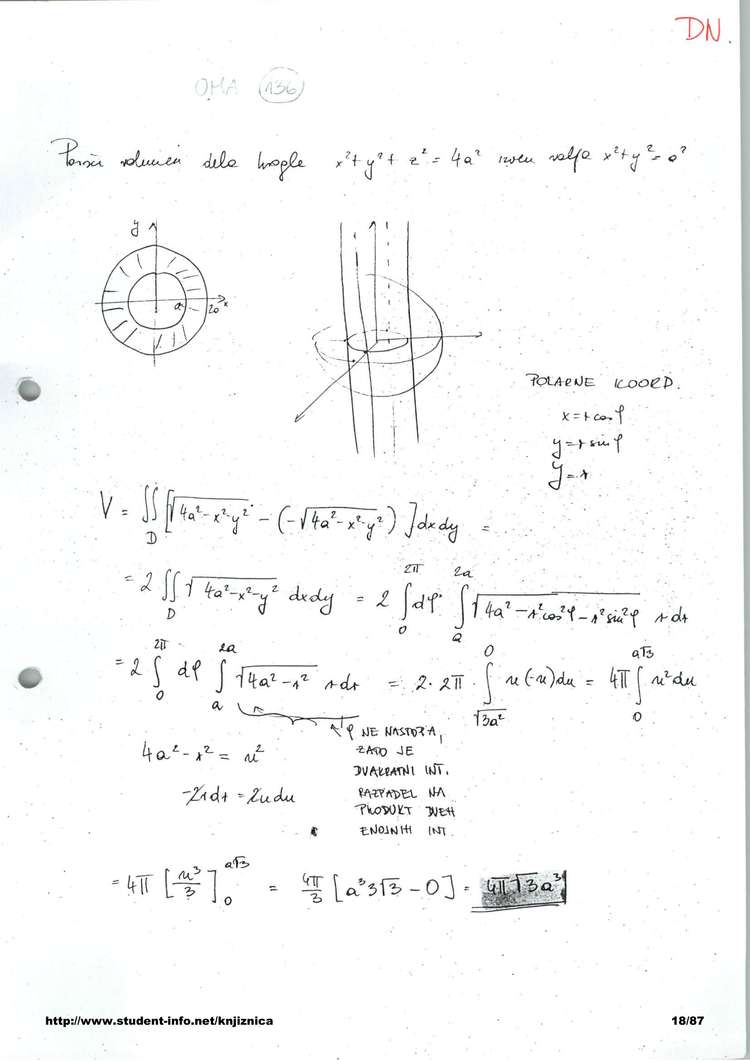 DN.
OMA 136
volumen dela krogle x²+y²+z² = 4a² izven valja x²+y²=a²
y
a 2a x
POLARNE KOORD.
x = r cos φ
y = r sin φ
J = r
V = ∬_D [√(4a²-x²-y²) - (-√(4a²-x²-y²))] dxdy =
= 2 ∬_D √(4a²-x²-y²) dxdy = 2 ∫_0^{2π} dφ ∫_a^{2a} √(4a²-r²cos²φ-r²sin²φ) r dr
= 2 ∫_0^{2π} dφ ∫_a^{2a} √(4a²-r²) r dr = 2·2π · ∫_{√3a²}^0 u(-u)du = 4π ∫_0^{a√3} u²du
4a²-r² = u²
-2rdr = 2udu
φ NE NASTOPA,
ZATO JE
DVAKRATNI INT.
RAZPADEL NA
PRODUKT DVEH
ENOJNIH INT.
= 4π [u³/3]_0^{a√3} = 4π/3 [a³3√3 - 0] = 4π√3a³
http://www.student-info.net/knjiznica
18/87